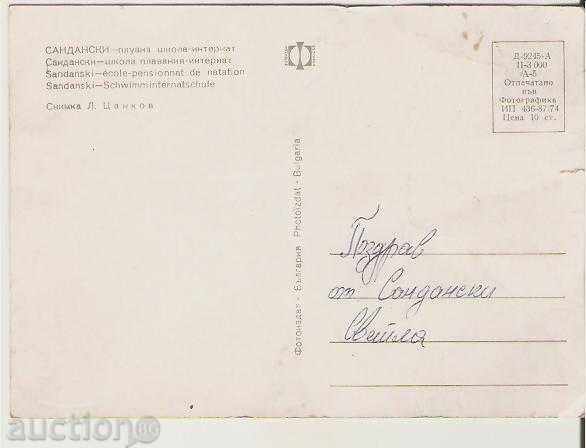 САНДАНСКИ—плувна школа-интернат
Сандански—школа плавания-интернат
Sandanski—école-pensionnat de natation
Sandanski—Schwimminternatschule
Снимка Л. Цанков
Фотоиздат - България Photoizdat - Bulgaria
Д-9245-А
П-3 000
/А-5
Отпечатано
във
Фотографика
ИП 436-87/74
Цена 10 ст.
Поздрав
от Сандански
Светла
auction.bg